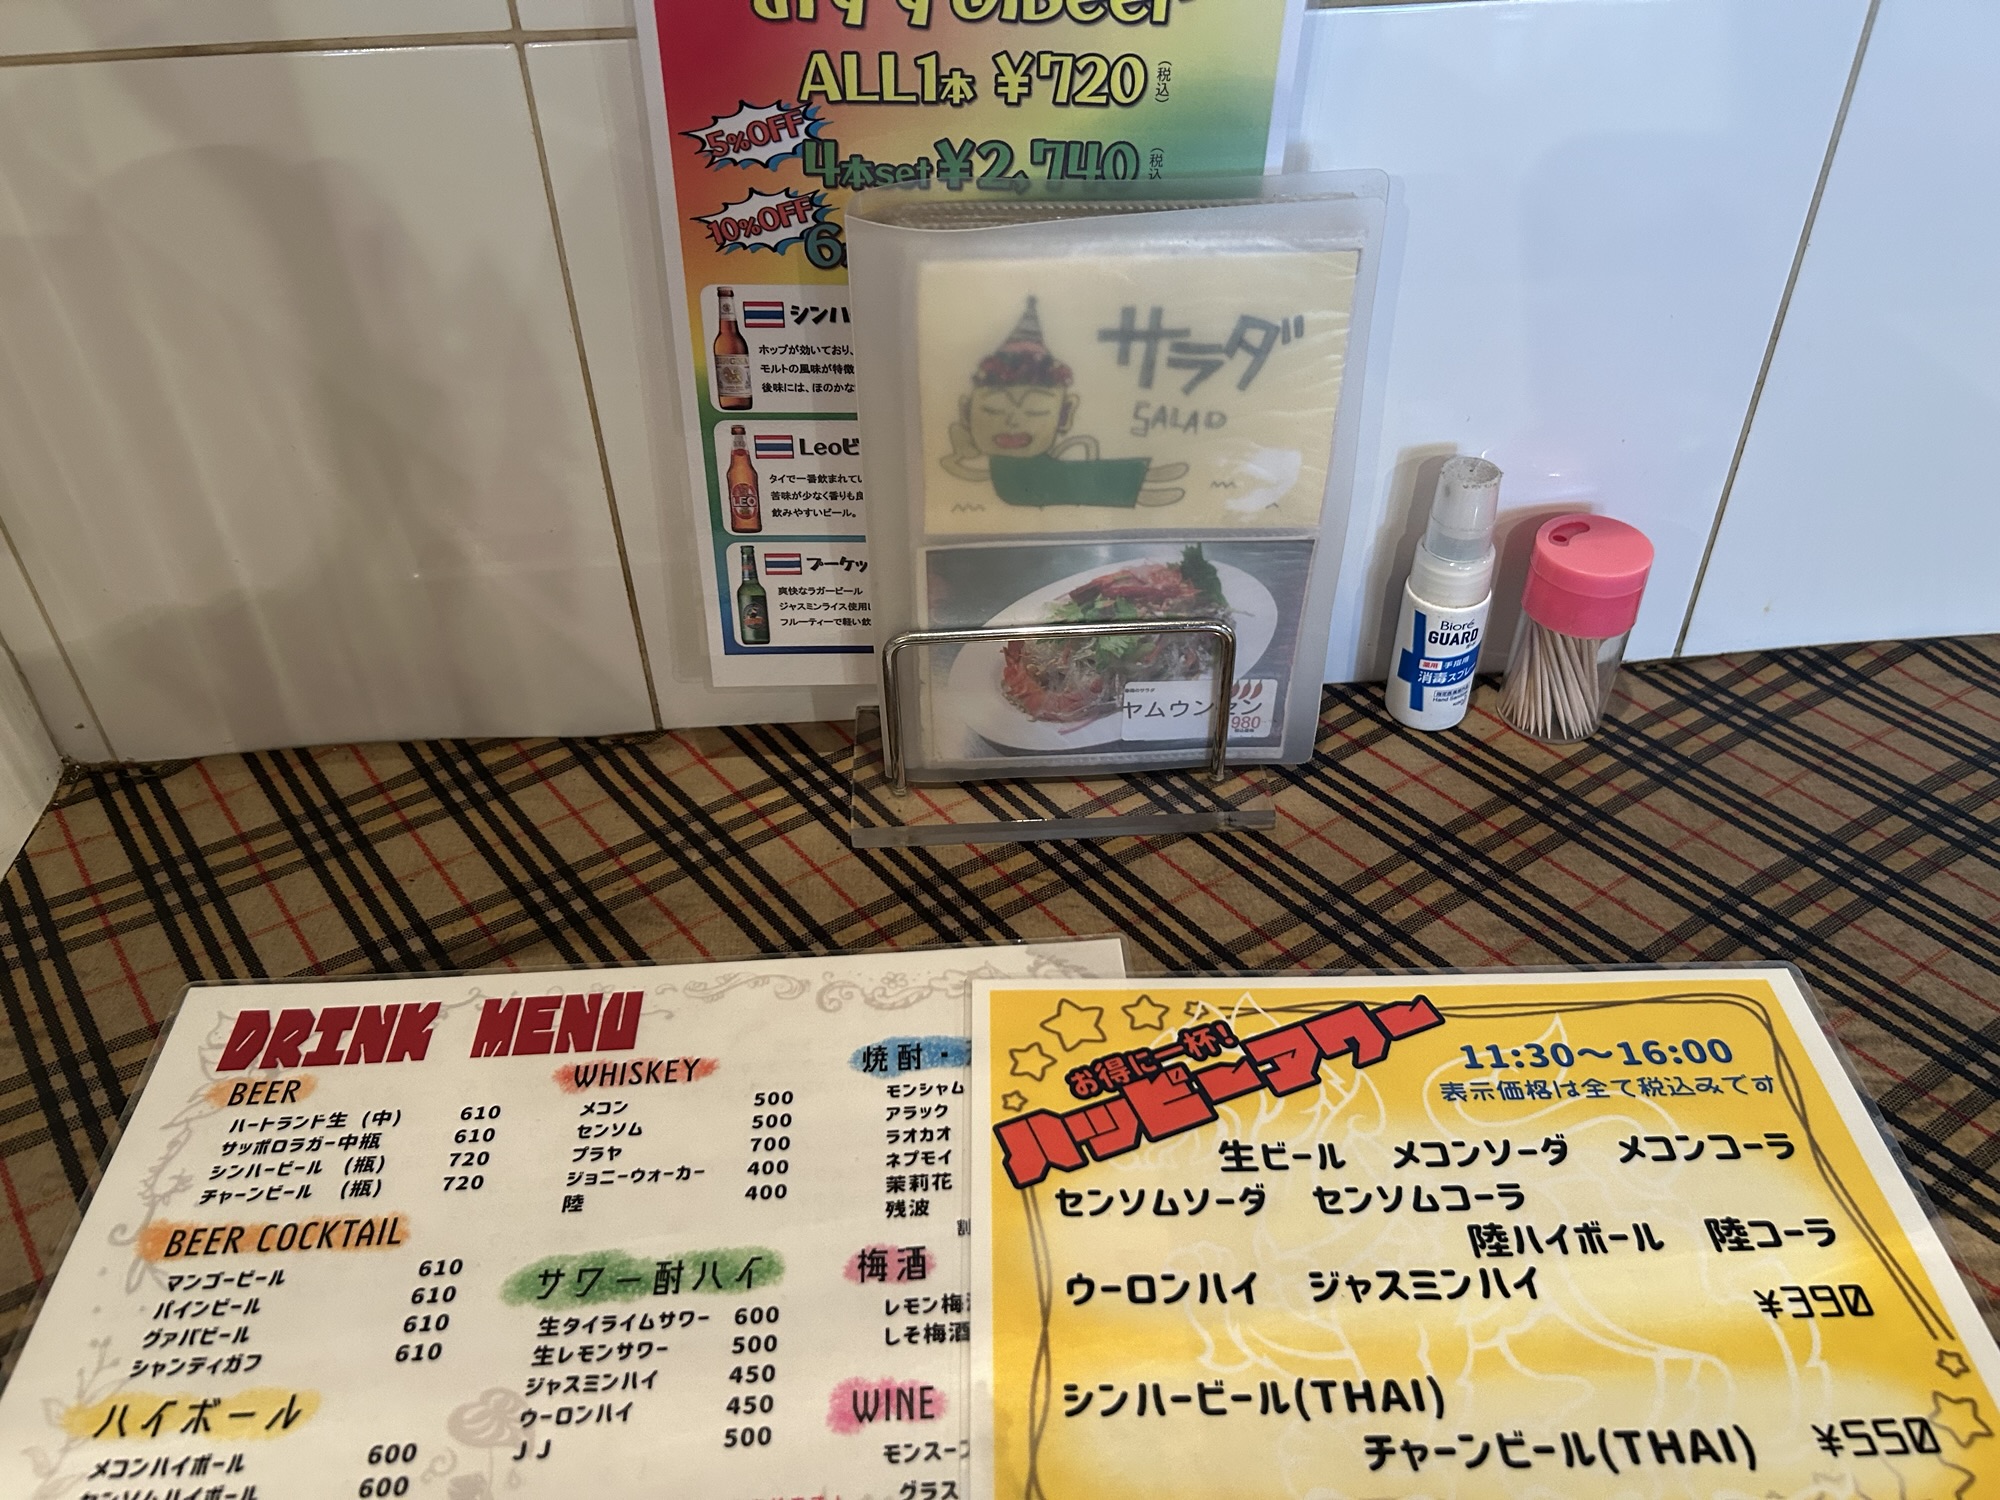 おすすめBeer
ALL1本 ¥720 (税込)
5%OFF
4本set ¥2,740 (税込
10%OFF
6
シンハ
ホップが効いており、
モルトの風味が特徴
後味には、ほのかな
Leoビ
タイで一番飲まれてい
苦味が少なく香りも良
飲みやすいビール。
プーケッ
爽快なラガービール
ジャスミンライス使用
フルーティーで軽い飲
サラダ
SALAD
ヤムウンセン
980
Bioré
GUARD
薬用 手指用
消毒スプレー
DRINK MENU
BEER
ハートランド生 (中) 610
サッポロラガー中瓶 610
シンハービール (瓶) 720
チャーンビール (瓶) 720
BEER COCKTAIL
マンゴービール 610
パインビール 610
グァバビール 610
シャンディガフ 610
ハイボール
メコンハイボール 600
センソムハイボール 600
WHISKEY
メコン 500
センソム 500
プラヤ 700
ジョニーウォーカー 400
陸 400
サワー酎ハイ
生タイライムサワー 600
生レモンサワー 500
ジャスミンハイ 450
ウーロンハイ 450
JJ 500
焼酎・
モンシャム
アラック
ラオカオ
ネプモイ
茉莉花
残波
割
梅酒
レモン梅
しそ梅酒
WINE
モンスー
グラス
お得に一杯!
ハッピーアワー
11:30〜16:00
表示価格は全て税込みです
生ビール メコンソーダ メコンコーラ
センソムソーダ センソムコーラ
陸ハイボール 陸コーラ
ウーロンハイ ジャスミンハイ
¥390
シンハービール(THAI)
チャーンビール(THAI) ¥550